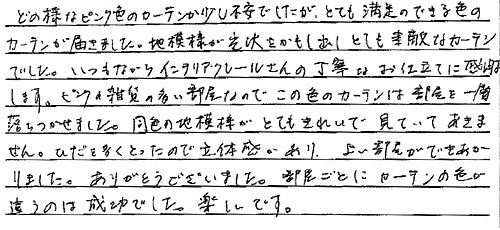 どの様なピンク色のカーテンか少し不安でしたが、とても満足のできる色の
カーテンが届きました。地模様が光沢をかもし出しとても素敵なカーテン
でした。いつもながらインテリアクレールさんの丁寧なお仕立てに感謝
します。ピンクの雑貨の多い部屋なのでこの色のカーテンは部屋を一層
落ちつかせました。同色の地模様がとてもきれいで見ていてあきま
せん。ひだを多くとったので立体感があり、よい部屋ができあが
りました。ありがとうございました。部屋ごとにカーテンの色が
違うのは成功でした。楽しいです。